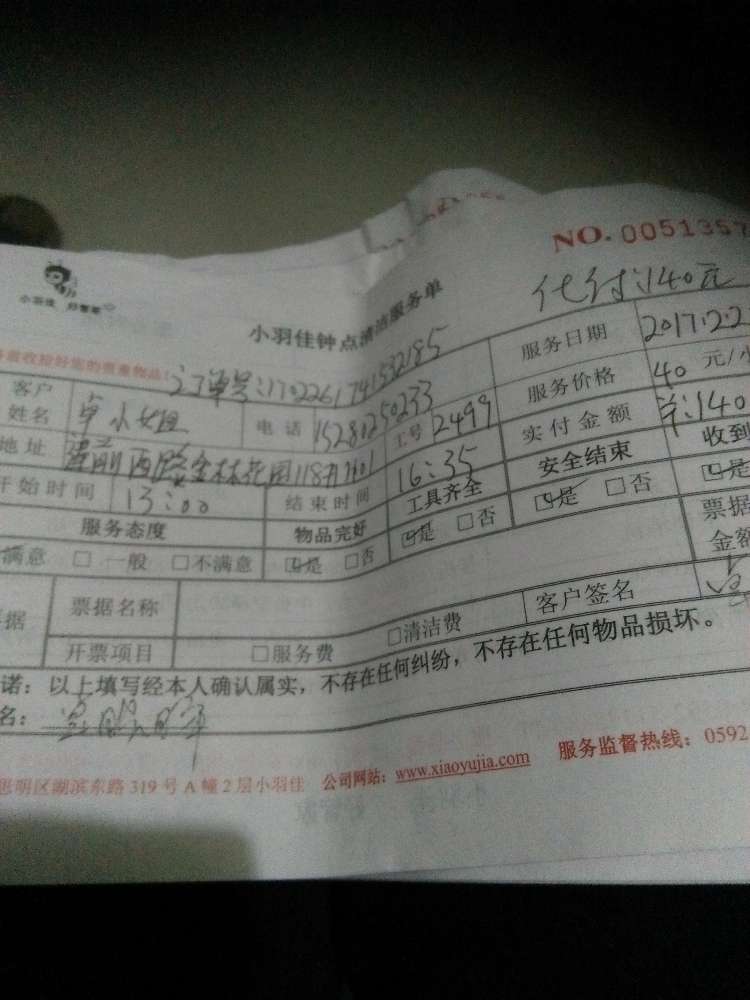 NO. 0051357
小羽佳 好管家
小羽佳钟点清洁服务单
代付:140元
收拾好您的贵重物品!
订单号:1702261741532185
服务日期 2017.2.2
客户姓名 卓小姐 电话 15280250233 服务价格 40 元/小
地址 西路金林花园118 1701 工号 2499 实付金额 单:140
开始时间 13:00 结束时间 16:35 安全结束 收到
服务态度 物品完好 工具齐全 ☑是 □否 □是
满意 □ 一般 □不满意 ☑是 □否 ☑是 □否 票据金额
据 票据名称 客户签名
开票项目 □服务费 □清洁费
诺:以上填写经本人确认属实,不存在任何纠纷,不存在任何物品损坏。
名:
思明区湖滨东路 319 号 A 幢 2 层小羽佳 公司网站:www.xiaoyujia.com 服务监督热线:0592